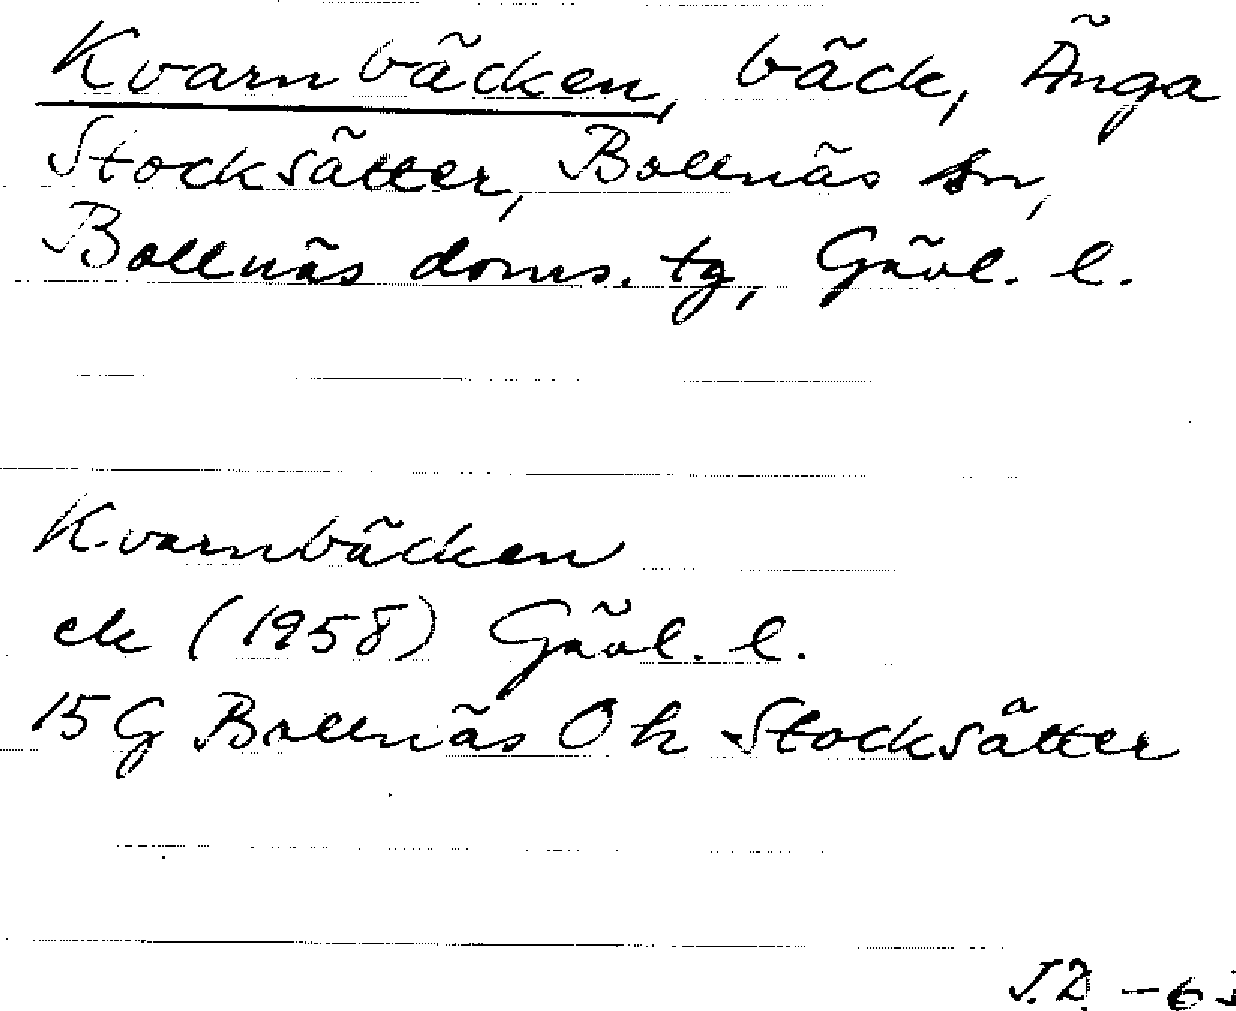 Kvarnbäcken, bäck, Änga
Stocksätter, Bollnäs sn,
Bollnäs doms. tg, Gävl. l.
Kvarnbäcken
ek (1958) Gävl. l.
15G Bollnäs 0 h Stocksätter